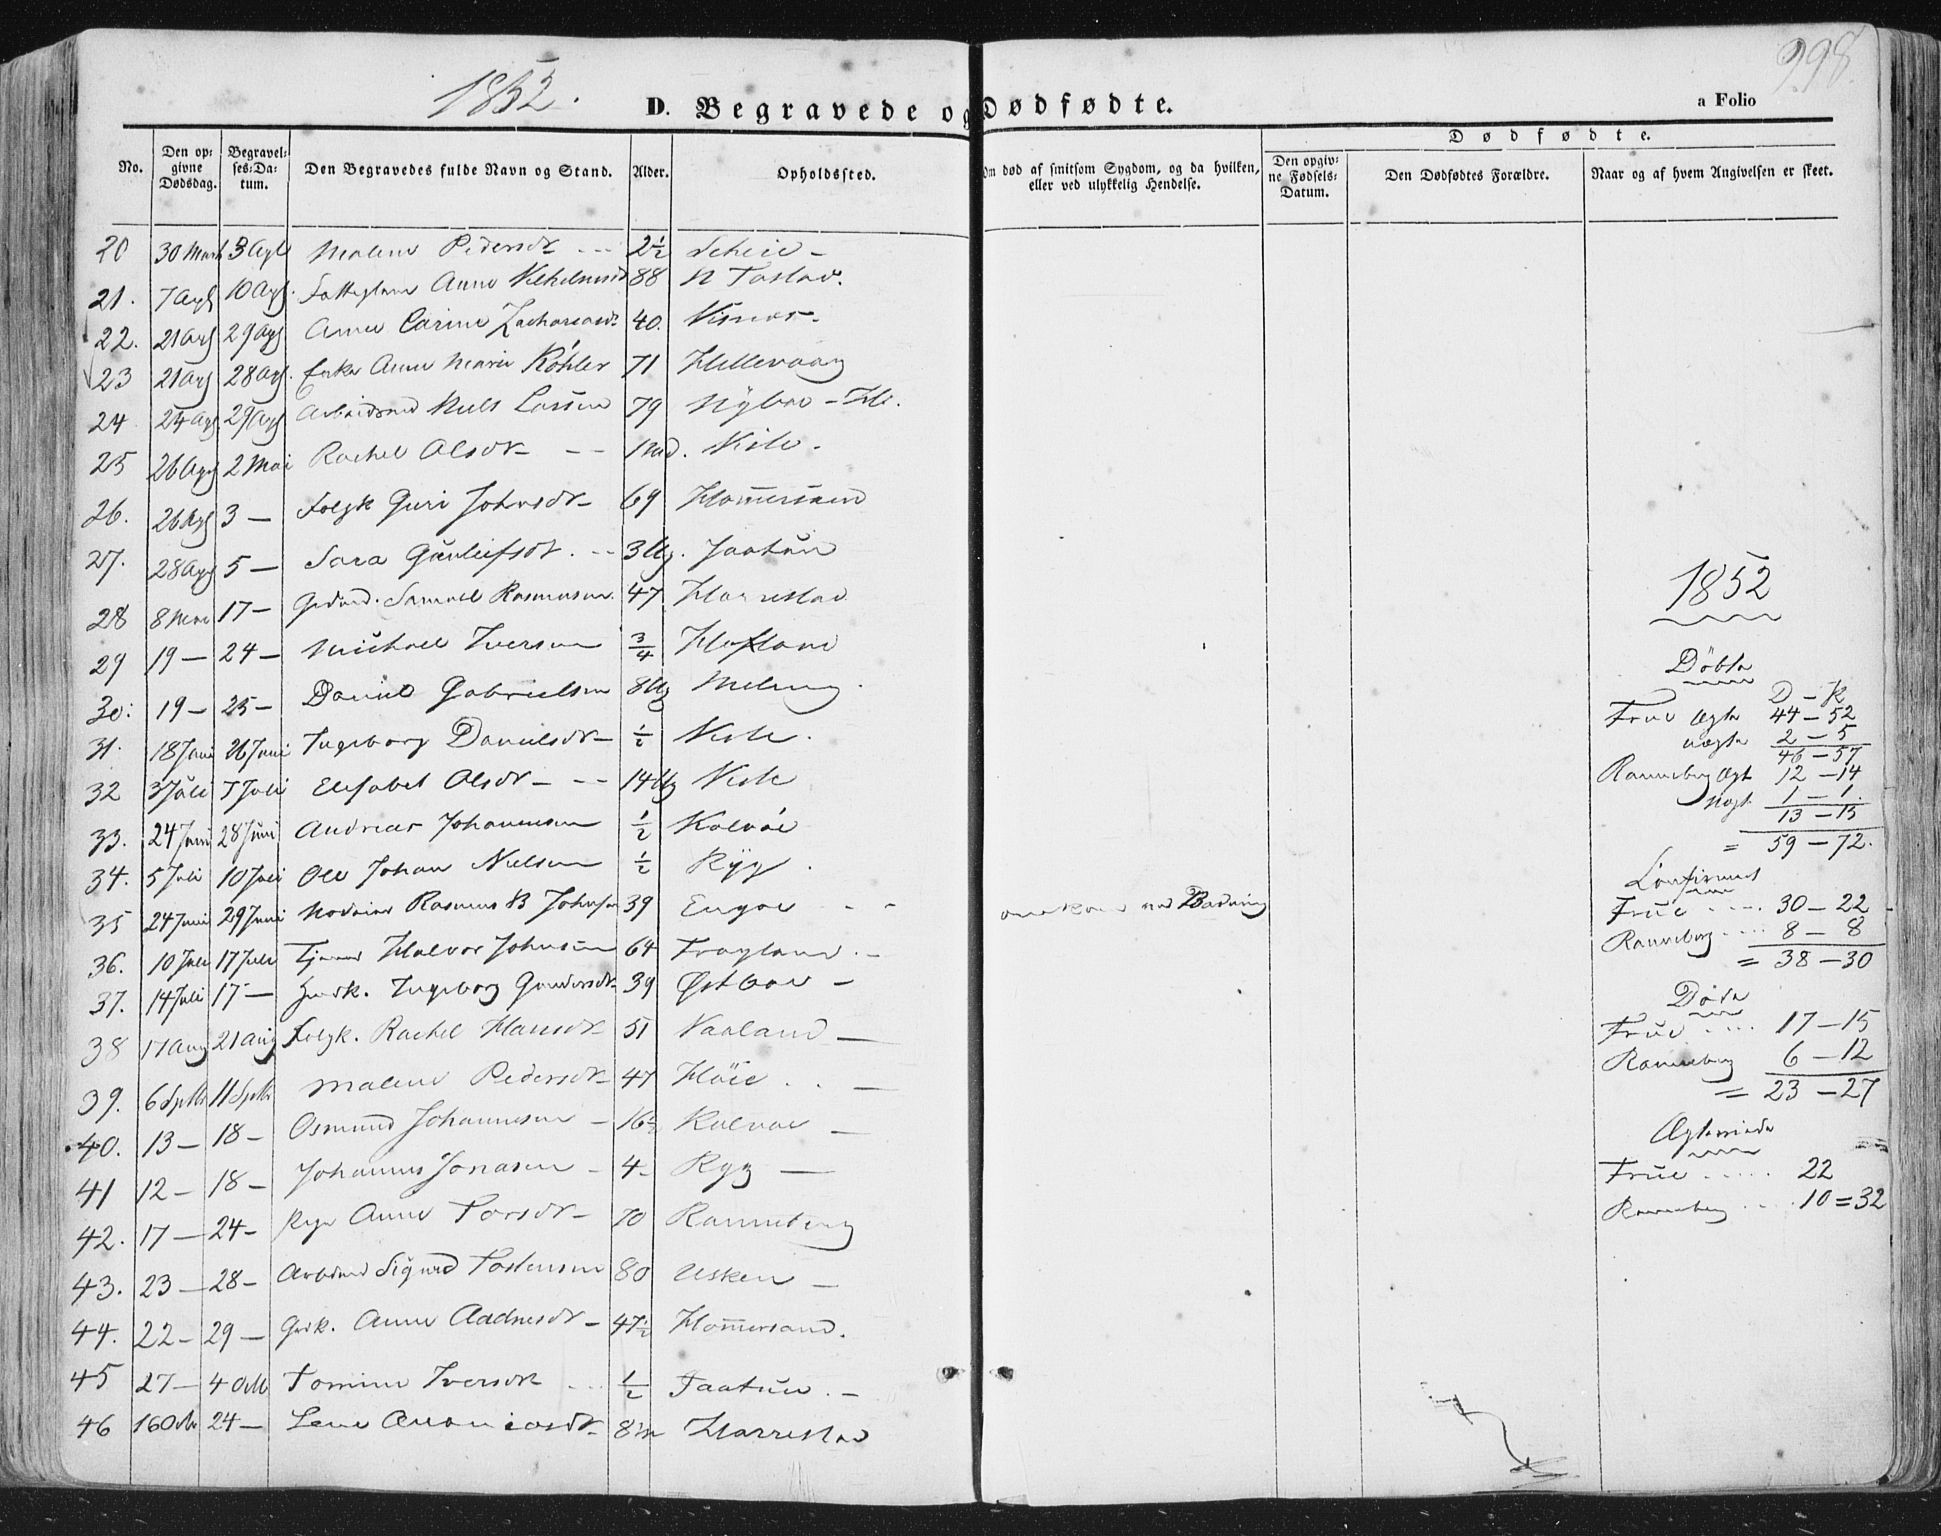 1852.
D. Begravede og Dødfødte.
a Folio
398.
Dødfødte.
No.
Den opgivne Dødsdag.
Begravelses-Datum.
Den Begravedes fulde Navn og Stand.
Alder.
Opholdssted.
Om død af smitsom Sygdom, og da hvilken, eller ved ulykkelig Hendelse.
Den opgivne Fødsels-Datum.
Den Dødfødtes Forældre.
Naar og af hvem Angivelsen er skeet.
20 30 Marts 3 Apl Malene Pedersdr 2½ Scheie -
21. 7 Apl 10 Apl. Fattiglem Anne Vilhelmsd 88 N Tastad.
22. 21 Apl 29 Apl Anne Carine Zachariasdr 40. Visnes.
23 21 Apl 28 Apl. Enke Anne Marie Köhler 71 Hillevaag
24 24 Apl 29 Apl Arbeidsmd Niels Larsen 79 Nÿboe - He.
25 26 Apl 2 Mai Rachel Olsdr - - 1 Md. Vith.
26. 26 Apl 3 - Folgk Guri Johnsdr - 69 Hom̄ersand
27. 28 Apl 5 - Sara Gunleifsdr. - - 3 Ug. Jaatun
28 8 Mai 17 - Grdmd. Samuel Rasmussen 47 Harrestad
29 19 - 24 - Michael Iversen ¾ Hafland
30. 19 - 25 - Daniel Gabrielsen 8 Ug Meling.
31. 18 Juni 26 Juni Ingeborg Danielsdr - ½ Viste.
32 3 Juli 7 Juli Elisabet Olsdr - - - 14 Ug Viste
33. 24 Juni 28 Juni Andreas Johannesen ½ Kalvöe
34. 5 Juli 10 Juli Ole Johan Nielsen ½ Rÿg.
35 24 Juni 29 Juni Rasmus B Johnsen 39 Engøe - - omkom ved Badning
36. 10 Juli 17 Juli Halvor Johnsen 64 Frøyland. -
37. 14 Juli 17 - Husk. Ingeborg Gundersdr 39 Østboe -
38 17 Aug 21 Aug Folgk. Rachel Hansdr 51 Vaaland -
39. 6 Sptb 11 Sptbr Malene Pedersdr - 47 Höie . . -
40. 13 - 18 - Osmund Johannesen - 16½ Kalvøe -
41 12 - 18 - Johannes Jonasen - 4 - Ryg -
42. 17 - 24 - Anne Torsdr - 70 Ranneberg
43. 23 - 28 - Arbdmd Sigurd Tostensen 80 Usken -
44. 22 - 29 - Grdk. Anne Aadnesdr - 47½ Hom̄ersand.
45 27 - 4 Octb Tomine Iversdr ½ Jaatun. -
46 16 Octb 24 - Lene Ananiasdr - 8½ Harrestad
1852
Døbte
D - K
Frue Ægte 44 - 52
uægte 2 - 5
46 - 57
Ranneberg Ægt. 12 - 14
uægt. 1 - 1
13 - 15
= 59 - 72.
Confirmert
Frue .... 30 - 22
Ranneberg .... 8 - 8
= 38 - 30
Døde
Frue .... 17 - 15
Ranneberg 6 - 12
= 23 - 27
Ægteviede
Frue ..... 22
Ranneberg .... 10 = 32